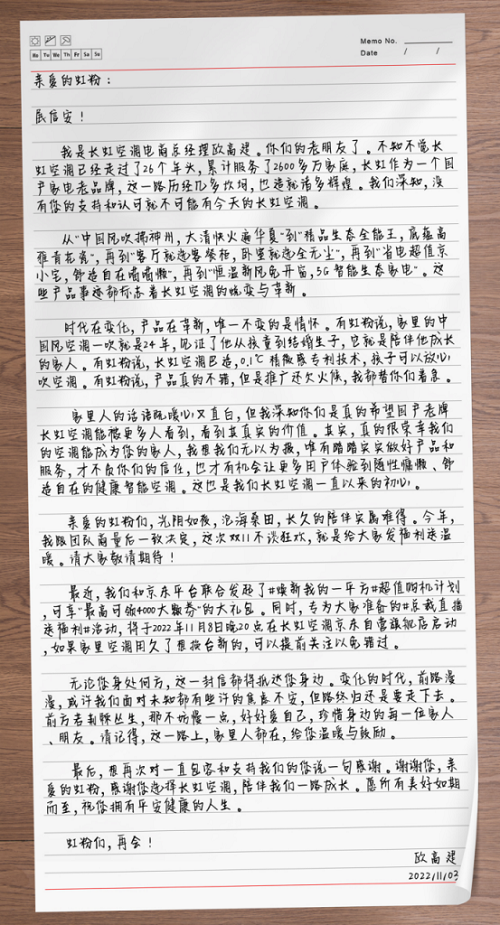 Memo No.
Mo Tu We Th Fr Sa Su
Date / /
亲爱的虹粉：
展信安！
我是长虹空调电商总经理欧高建。你们的老朋友了。不知不觉长
虹空调已经走过了26个年头，累计服务了2600多万家庭，长虹作为一个国
产家电老品牌，这一路历经几多坎坷，也造就诸多辉煌。我们深知，没
有您的支持和认可就不可能有今天的长虹空调。
从“中国风吹拂神州，大清快火遍华夏”到“精品生态全能王，底蕴高
雅青花瓷”，再到“客厅就选客餐柜，卧室就选全无尘”，再到“省电超值京
小宅，舒适自在懒懒懒”，再到“恒温新风免开窗，5G智能生态家电”。这
些产品事迹都标志着长虹空调的蜕变与革新。
时代在变化，产品在革新，唯一不变的是情怀。有虹粉说，家里的中
国风空调一吹就是24年，见证了他从孩童到结婚生子，它就是陪伴他成长
的家人。有虹粉说，长虹空调巴适，0.1℃精微感专利技术，孩子可以放心
吹空调。有虹粉说，产品真的不错，但是推广还欠火候，我都替你们着急。
家里人的话语既暖心又直白，但我深知你们是真的希望国产老牌
长虹空调能被更多人看到，看到其真实的价值。其实，真的很荣幸我们
的空调能成为您的家人，我想我们无以为报，唯有踏踏实实做好产品和
服务，才不负你们的信任，也才有机会让更多用户体验到随性慵懒、舒
适自在的健康智能空调。这也是我们长虹空调一直以来的初心。
亲爱的虹粉们，光阴如梭，沧海桑田，长久的陪伴实属难得。今年，
我跟团队商量后一致决定，这次双11不谈狂欢，就是给大家发福利送温
暖。请大家敬请期待！
最近，我们和京东平台联合发起了#焕新我的一平方#超值购机计划
，可享“最高可领4000大额券”的大礼包。同时，专为大家准备的#总裁直播
送福利#活动，将于2022年11月8日晚20点在长虹空调京东自营旗舰店启动
，如果家里空调用久了想换台新的，可以提前关注以免错过。
无论您身处何方，这一封信都将抵达您身边。变化的时代，前路漫
漫，或许我们面对未知都有些许的焦虑不安，但路终归还是要走下去。
前方若荆棘丛生，那不妨慢一点，好好爱自己，珍惜身边的每一位家人
、朋友。请记得，这一路上，家里人都在，给您温暖与鼓励。
最后，想再次对一直包容和支持我们的您说一句感谢。谢谢您，亲
爱的虹粉，感谢您选择长虹空调，陪伴我们一路成长。愿所有美好如期
而至，祝您拥有平安健康的人生。
虹粉们，再会！
欧高建
2022/11/03